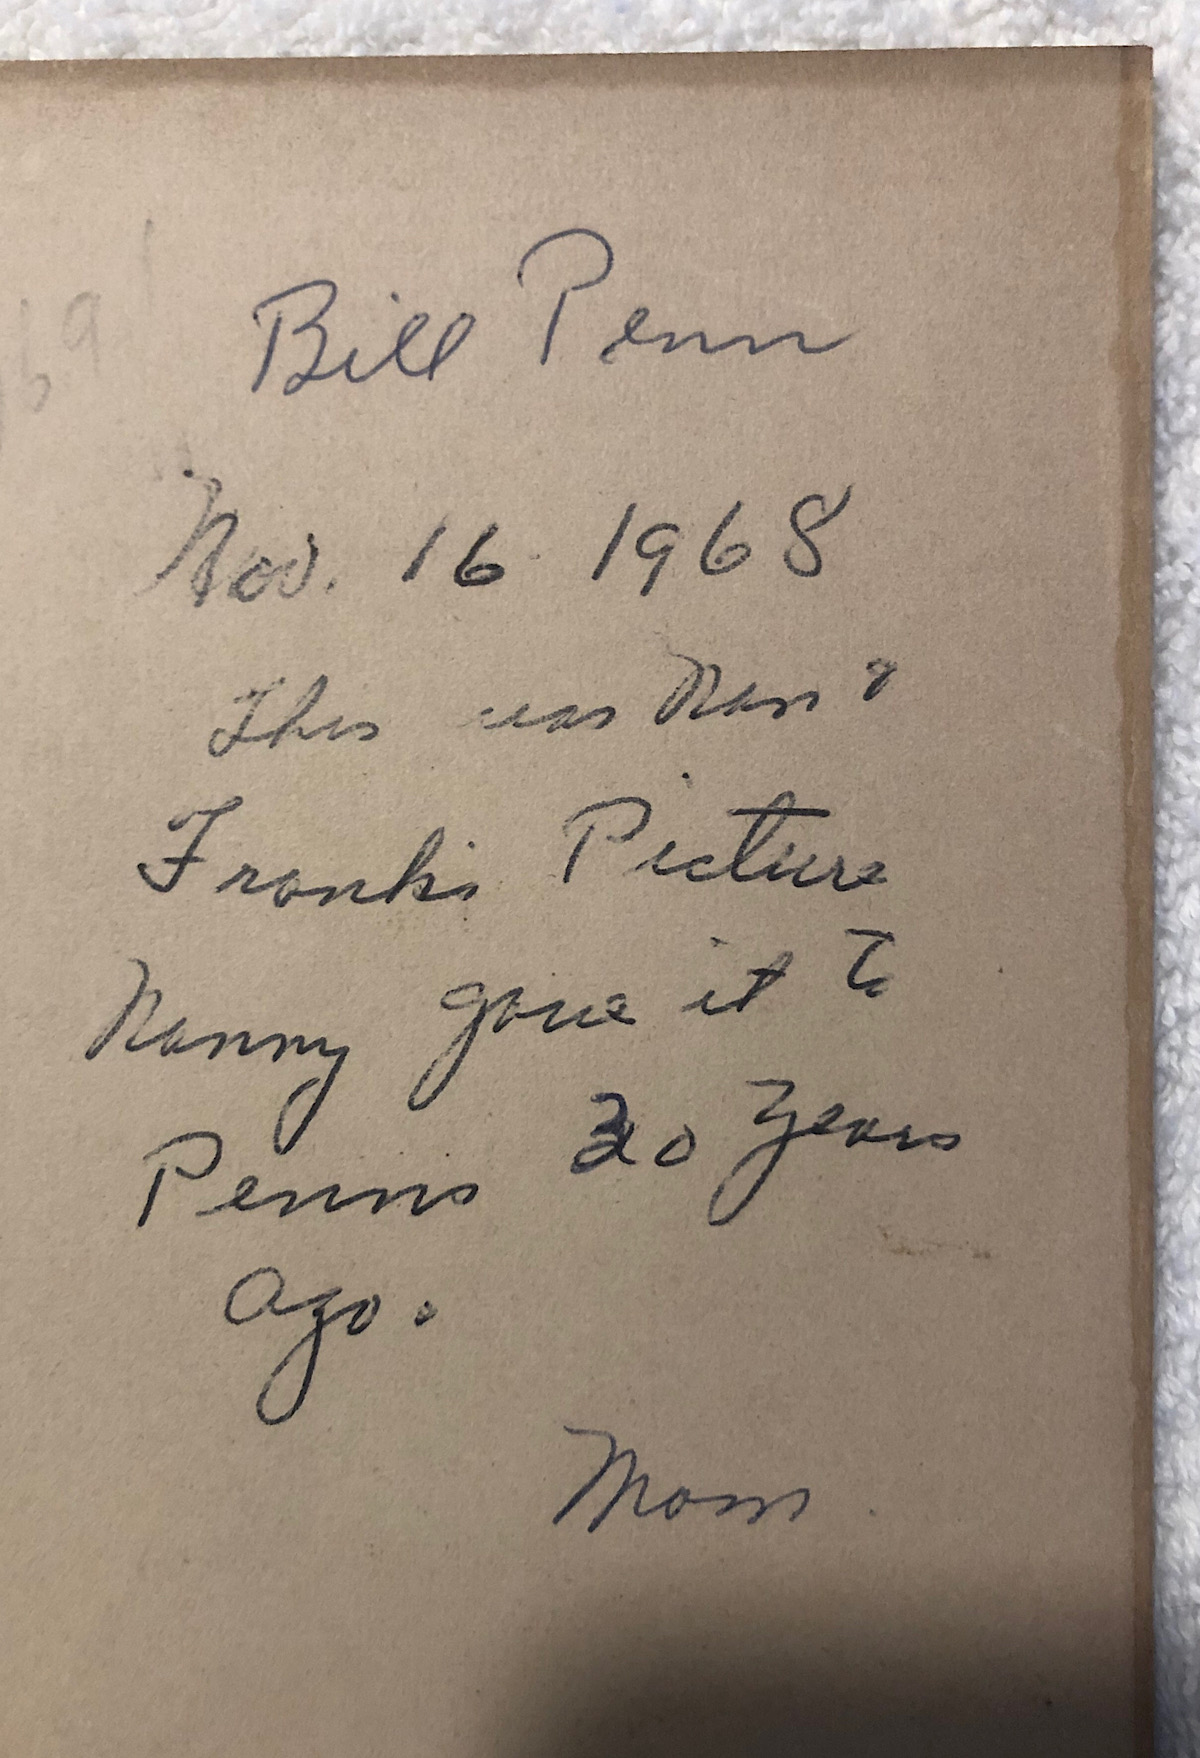 Bill Penn
Nov. 16 1968
This was Nan &
Frank's Picture
Nanny gave it to
Penns 20 years
ago.
Mom